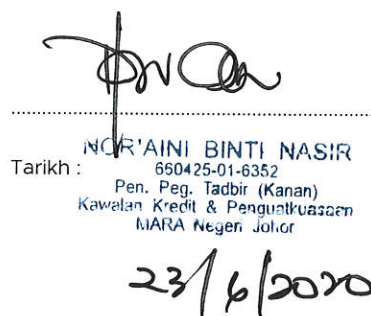 NOR'AINI BINTI NASIR
Tarikh : 660425-01-6352
Pen. Peg. Tadbir (Kanan)
Kawalan Kredit & Penguatkuasaan
MARA Negeri Johor
23/6/2020